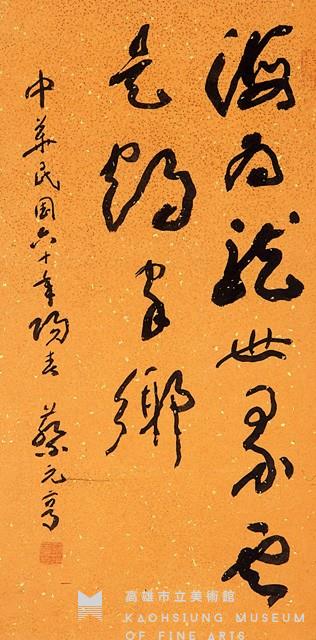 海為龍世界雲
是鶴家鄉
中華民國六十年陽春 蔡元亨
高雄市立美術館
KAOHSIUNG MUSEUM
OF FINE ARTS